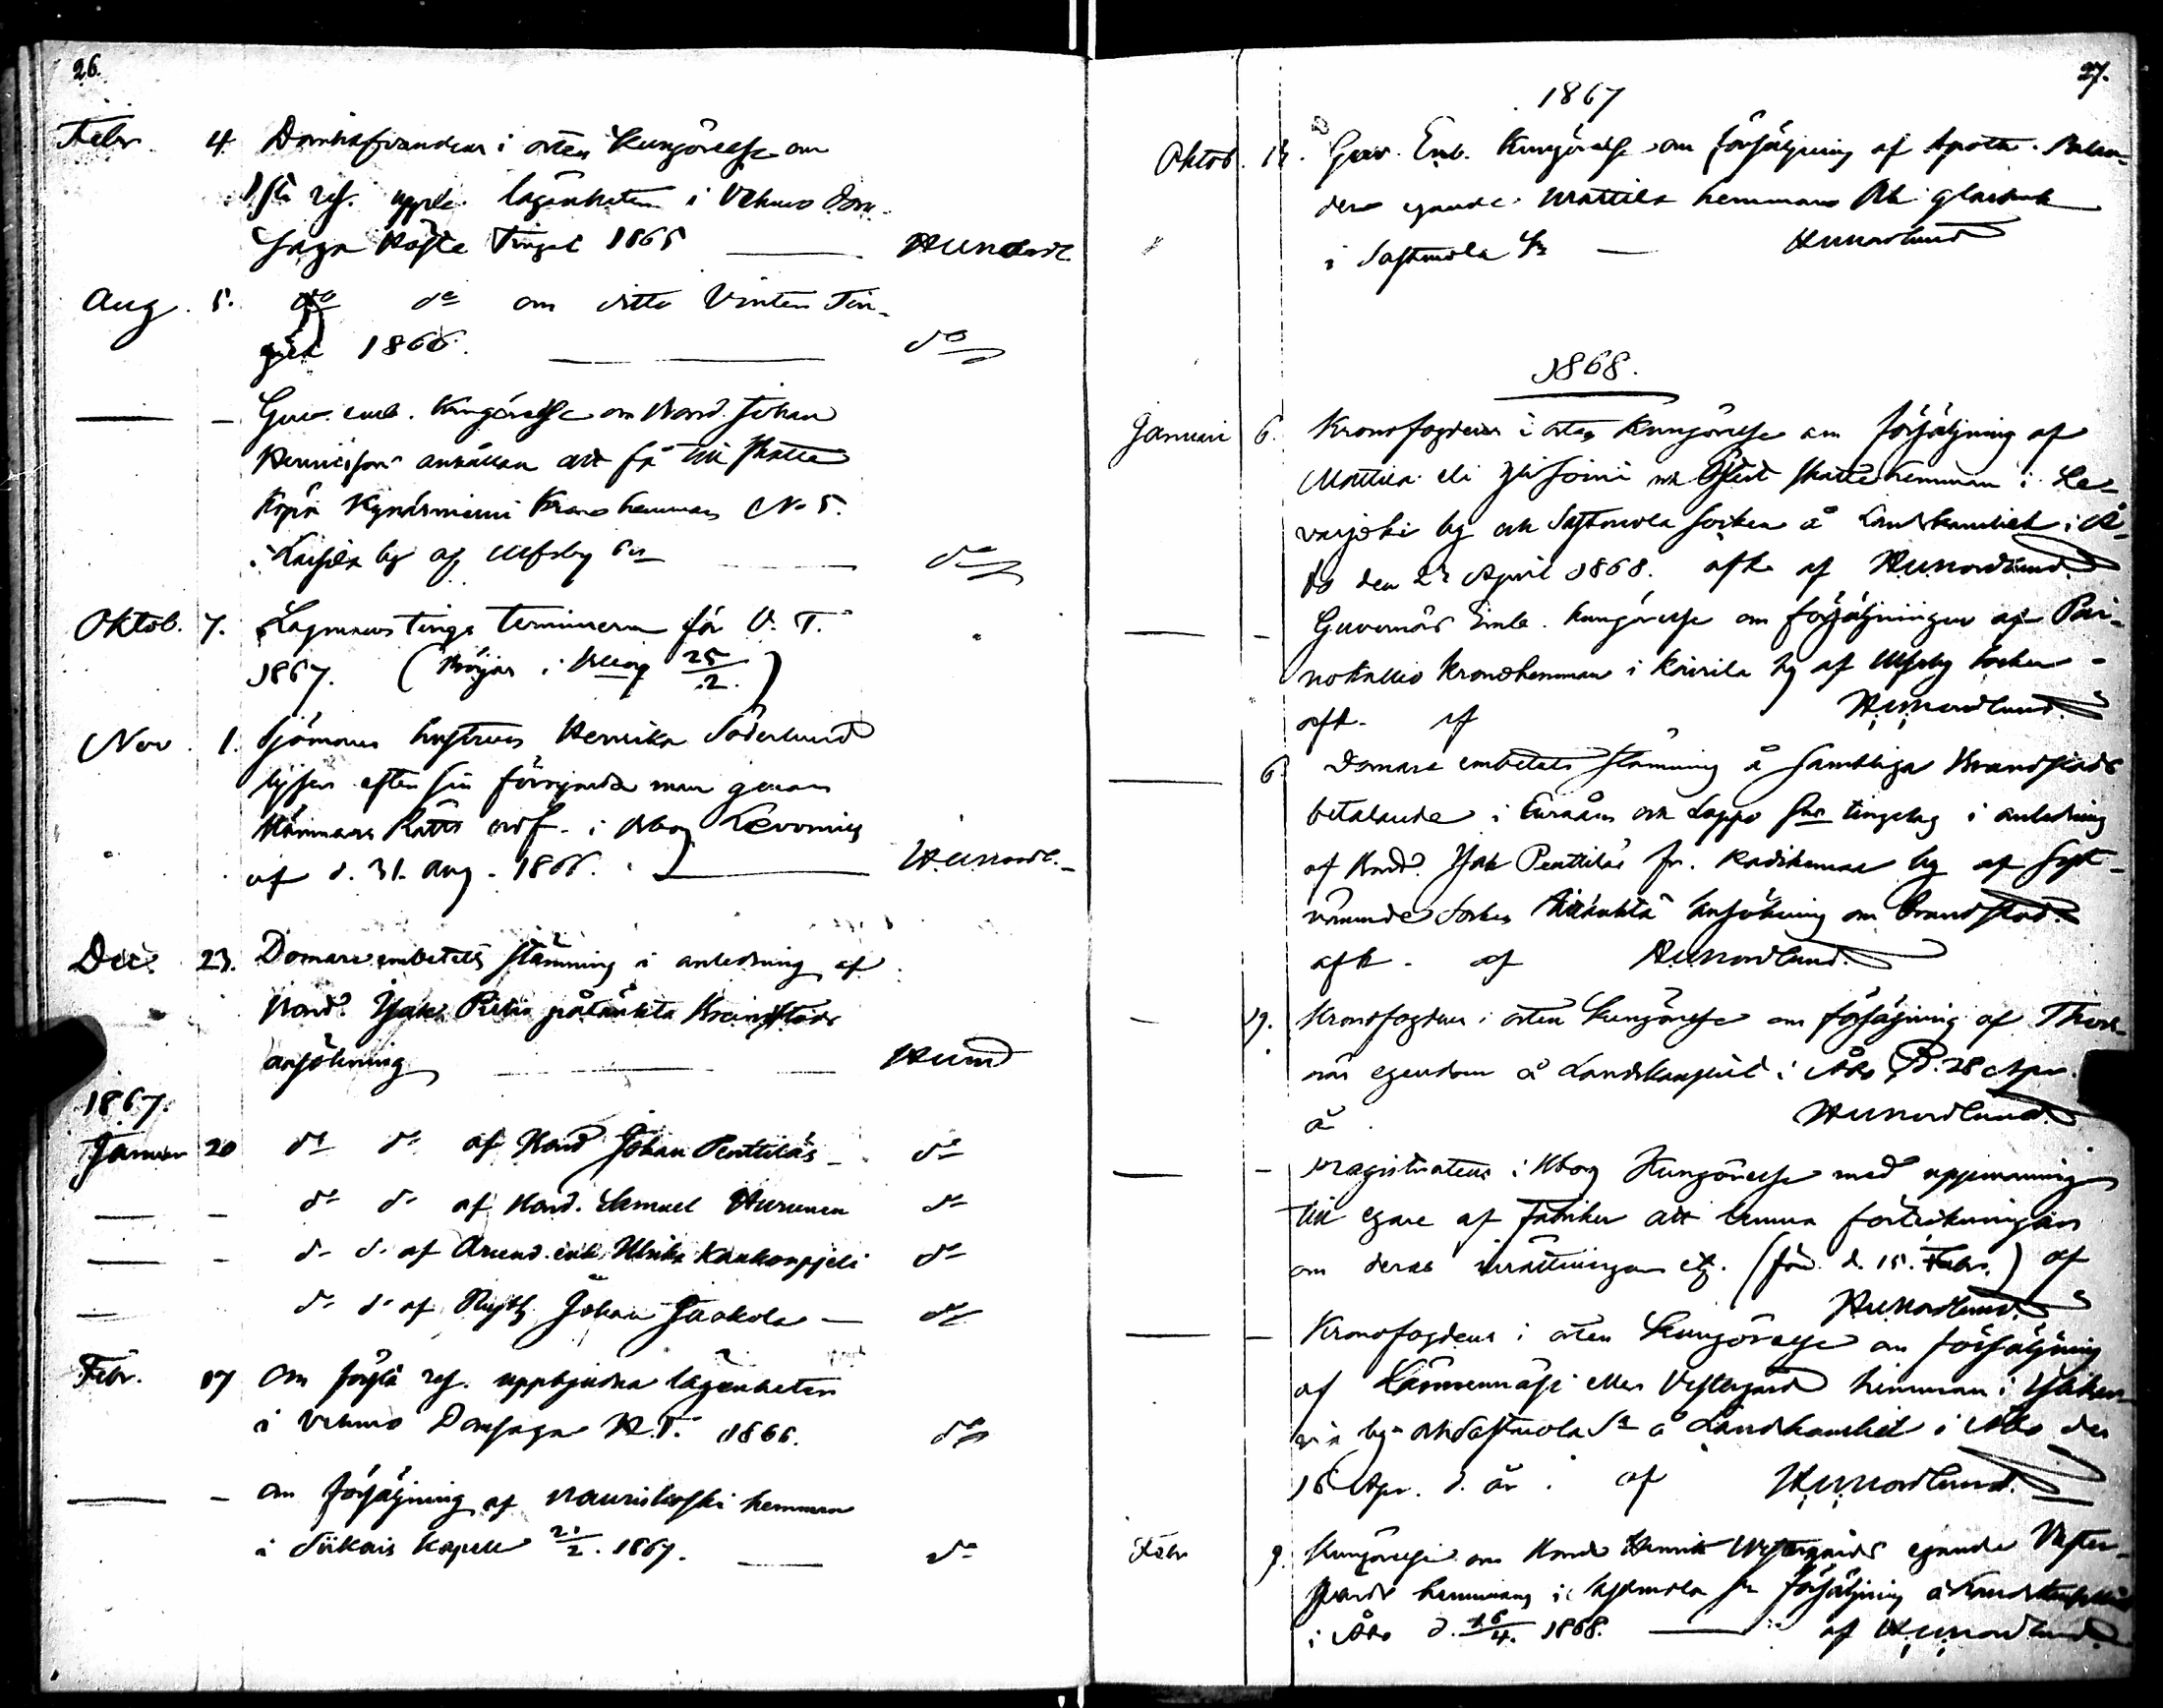 26.
Febr. 4. Domhafvandens i orten Kungörelse om
1sta res. uppb. lägenheten i Vehmo Dom-
saga Höste Tinget 1865 HUNordl
Aug. 5. do do om ditto Vinter Tin-
get 1866. do
— - Guv. emb. Kungörelse om Bond. Johan
Henricsons anhållan att få till skatte
köpa Krono hemman No 5.
i by af Ulfsby Sn do
Oktob. 7. Lagmans tings terminerna för V. T.
1867. (Börjas i 25/2.)
Nov. 1. Sjömans hustrun Henrika Söderlund
lyser efter sin försvunna man genom
Rätts i Åbo
af d. 31. Aug. 1866. HUNordl.
Dec. 23. Domare embetets stämning i anledning af
Bond. Isak påtänkta Brandstods
ansökning HUNd
1867.
Januar 20 do do af Bond Johan Penttiläs do
— - do do af Bond. Samuel Hurunen do
— - do do af Arrend. enk. Ulrika do
— do do af Johan Jaakola — do
Febr. 17 Om första res. uppbjudna lägenheter
i Vehmo Domsaga H.T. 1866. do
— - Om försäljning af hemman
i Siikais Kapell 21/2. 1867. do
27.
1867
Oktob. 13. Guv. Emb. Kungörelse om försäljning af Apoth.
egande Mattila hemman och glasbruk
i Sastmola Sn — HUNordlund
1868.
Januari 6. Kronofogdens i orten Kungörelse om försäljning af
Mattila eli Yli Soini skatte hemman i Le-
väjoki by och Sastmola socken å Landskansliet i Å-
bo den 23 April 1868. afk. af HUNordlund.
— - Guvernörs Emb. kungörelse om försäljningen af
Kronohemman i Koivila by af Ulfsby Socken -
afk. af HUNordlund.
— 6. Domare embetets stämning å samtliga Brandstods
betalande i Euraåm. och Lappo Snr tingslag i anledning
af Bond. Isak Penttiläs fr. by af
nämnde Socken ansökning om Brandstod.
afk. af HUNordlund.
— 19. Kronofogdens i orten Kungörelse om försäljning af
egendom å Landskansliet i Åbo d. 28 Apr.
å HUNordlund.
— - Magistratens i Åbo Kungörelse med uppmaning
till egare af Fabriker att lemna förteckningar
om deras inrättningar etz. (för d. 15. Febr.) af
HUNordlund.
— - Kronofogdens i orten Kungörelse om försäljning
af eller Vestergård hemman i
by och Sastmola Sn å Landskansliet i Åbo den
16 Apr. d. år. af HUNordlund.
Febr 9. Kungörelse om Bonde Henrik Westergårds egande Vester-
gårds hemmans i Sastmola Sn försäljning å Landskansliet
i Åbo d. 16/4. 1868. — af HUNordlund.